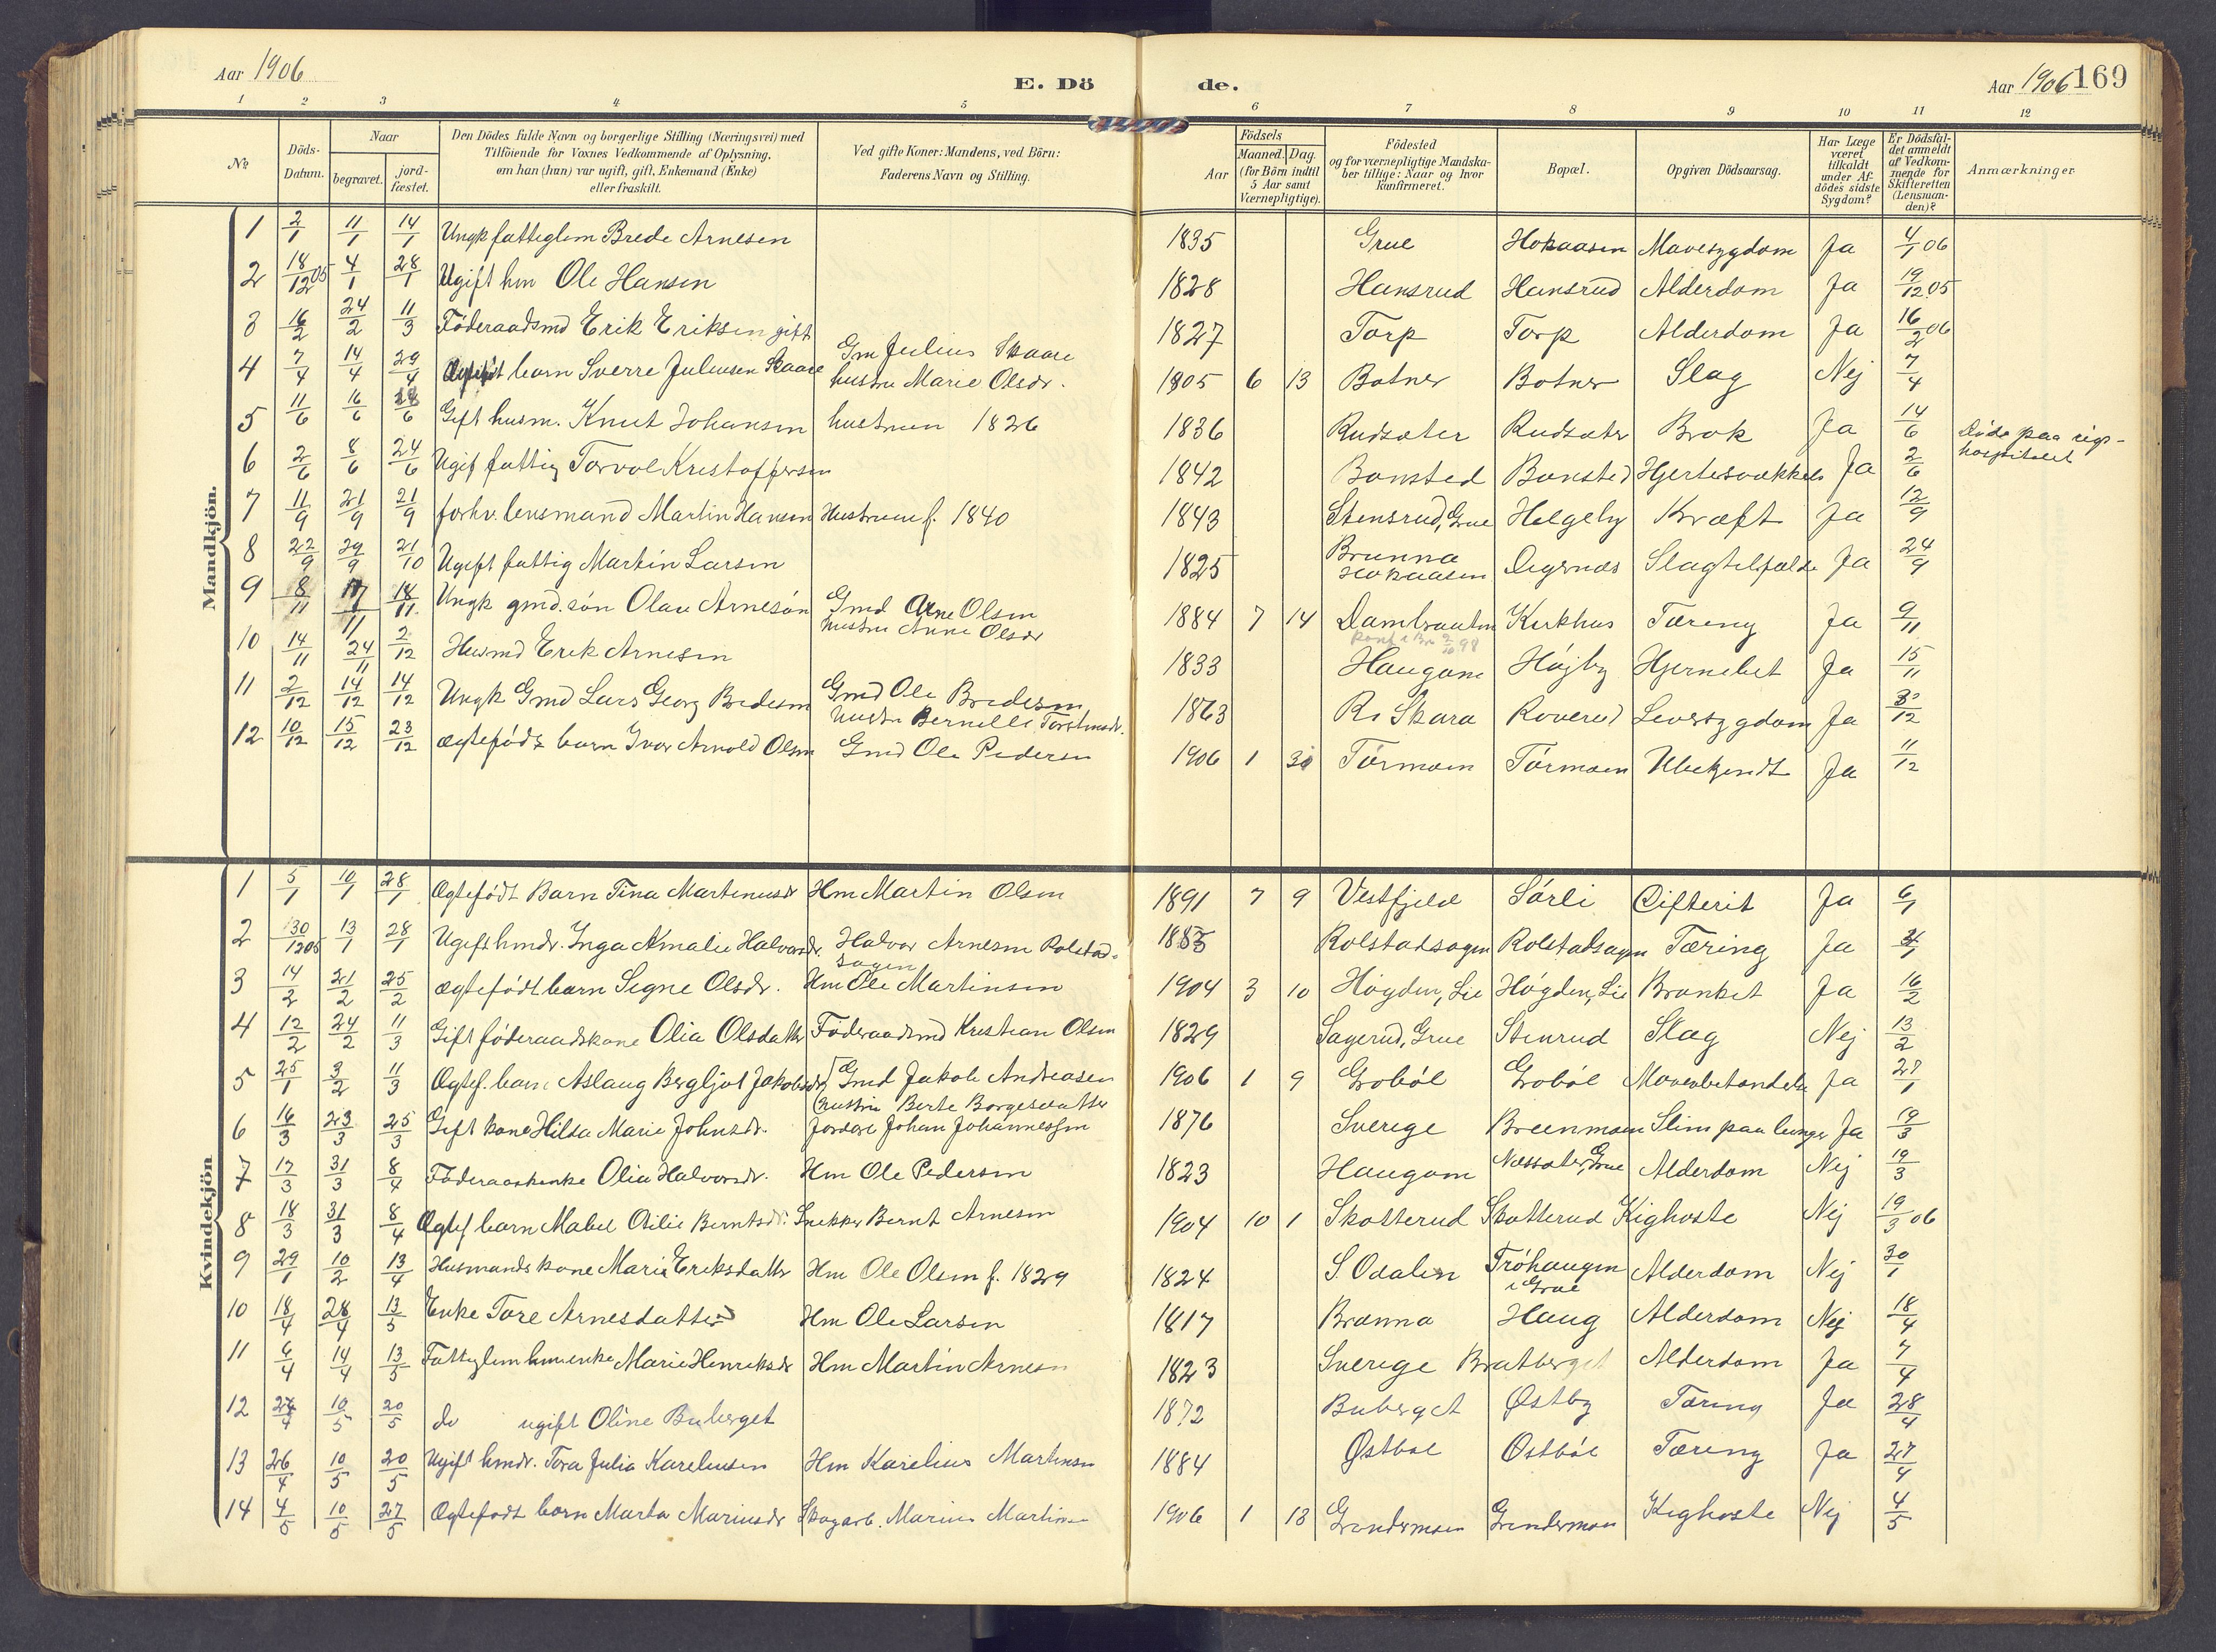 Aar 1906
E. Dö
de.
Aar 1906 169
1 2 3 4 5 6 7 8 9 10 11 12
№
Döds-Datum.
Naar
begravet.
jord-fæstet.
Den Dödes fulde Navn og borgerlige Stilling (Næringsvei) med
Tilföiende for Voxnes Vedkommende af Oplysning,
om han (hun) var ugift, gift, Enkemand (Enke)
eller fraskilt.
Ved gifte Koner: Mandens, ved Börn:
Faderens Navn og Stilling.
Födsels
Aar
Maaned. Dag.
(for Börn indtil
5 Aar samt
Værnepligtige).
Födested
og for værnepligtige Mandska-
ber tillige: Naar og hvor
konfirmeret.
Bopæl.
Opgiven Dödsaarsag.
Har Læge
været
tilkaldt
under Af-
dödes sidste
Sygdom?
Er Dödsfal-
det anmeldt
af Vedkom-
mende for
Skifteretten
(Lensman-
den)?
Anmærkninger.
Mandkjön.
1 2/1 11/1 14/1 Ungk fattiglem Brede Arnesen 1835 Grue Hokaasen Mavesygdom Ja 4/1 06
2 18/12 05 4/1 28/1 Ugift hm Ole Hansen 1828 Hansrud Hansrud Alderdom Ja 19/12 05
3 16/2 24/2 11/3 Föderaadsmd Erik Eriksen gift 1827 Torp Torp Alderdom Ja 16/2 06
4 7/4 14/4 29/4 barn Sverre Juliussen Skaare Gm Julius Skaare
hustru Marie Olsdr. 1905 6 13 Botner Botner Slag Nej 7/4
5 11/6 16/6 Gift husm. Knut Johansen hustruen 1826 1836 Rudsæter Rudsæter Brok Ja 14/6 Døde paa rigs-
hospitalet
6 2/6 8/6 24/6 Ugif fattig Torvol Kristoffersen 1842 Bonsted Bonsted Hjertesvækkels Ja 2/6
7 11/9 21/9 21/9 forhv. lensmand Martin Hansen Hustruen f. 1840 1843 Stensrud, Grue Helgeby Kræft Ja 12/9
8 22/9 29/9 21/10 Ugift fattig Martin Larsen 1825 Brunna
Hokaasen Digernæs Slagtilfælde Ja 24/9
9 8/11 17/11 18/11 Ungk gmd. søn Olav Arnesøn Gmd Arne Olsen
hustru Anne Olsdr 1884 7 14 Dambraaten Kirkhus Tæring Ja 9/11
10 14/11 24/11 2/12 Husmd Erik Arnesen 1833 Haugom Højby Hjernebet Ja 15/11
11 2/12 14/12 14/12 Ungk Gmd Lars Georg Bredesen Gmd Ole Bredesen
hustru Bernille Torstensdr. 1863 Ro Skara Roverud Leversygdom Ja 3/12
12 10/12 15/12 23/12 ægtefødt barn Ivar Arnold Olsen Gmd Ole Pedersen 1906 1 Törmoen Törmoen Ubekjendt Ja 11/12
Kvindekjön
1 5/1 10/1 28/1 Ægtefødt Barn Tina Martinusdr Hm Martin Olsen 1891 7 9 Vestfjeld Sørli Difterit Ja 6/1
2 30/12 05 13/1 28/1 Ugift hmdr. Inga Amalie Halvorsdr. Halvor Arnesen Rolstad-
sagen Rolstadsagen Rolstadsagen Tæring Ja
3 14/2 21/2 25/2 ægtefødt barn Signe Olsdr. Hm Ole Martinsen 1904 3 10 Høgden, Lie Høgden, Lie Bronkit Ja 16/2
4 12/2 24/2 11/3 Gift føderaadskone Olia Olsdatter Føderaadsmd Kristian Olsen 1829 Sagerud, Grue Stenrud Slag Nej 13/2
5 25/1 3/2 11/3 Ægtef. barn Aslaug Bergljot Jakobsdr Gmd Jakob Andreasen
hustru Berte Borgersdatter 1906 1 9 Grobøl Grobøl Mavebetændelse Ja 27/1
6 16/3 23/3 25/3 Gift kone Hilda Marie Johnsdr. Forders Johan Johannessen 1876 Sverige Breenmoen Slim paa lunger Ja 19/3
7 17/3 31/3 8/4 Føderaaskenke Olia Halvorsdr. Hm Ole Pedersen 1823 Haugom Næssæter, Grue Alderdom Nej 19/3
8 18/3 31/3 8/4 Ægtef barn Mabel Otilie Berntsdr. Snekker Bernt Arnesen 1904 10 1 Skotterud Skotterud Kighoste Nej 19/3 06
9 29/1 10/2 13/4 Husmands kone Marie Eriksdatter Hm Ole Olsen f. 1829 1824 S. Odalen Frøhaugen
i Grue Alderdom Nej 30/1
10 18/4 28/4 13/5 Enke Tore Arnesdatter Hm Ole Larsen 1817 Branna Haug Alderdom Nej 18/4
11 6/4 14/4 13/5 Fattiglem hmenke Marie Henriksdr Hm Martin Arnesen 1823 Sverige Bratberget Alderdom Ja 7/4
12 27/4 10/5 20/5 do ugift Oline Buberget 1872 Buberget Østby Tæring Ja 28/4
13 26/4 10/5 20/5 Ugift hmdr. Tora Julia Kareliusen Hm Karelius Martinsen 1884 Østbøl Østbøl Tæring Ja 27/4
14 4/5 10/5 27/5 Ægtefødt barn Marta Mariusdr Skogarb. Marius Martinsen 1906 1 13 Grindermoen Grindermoen Kighoste Nej 4/5